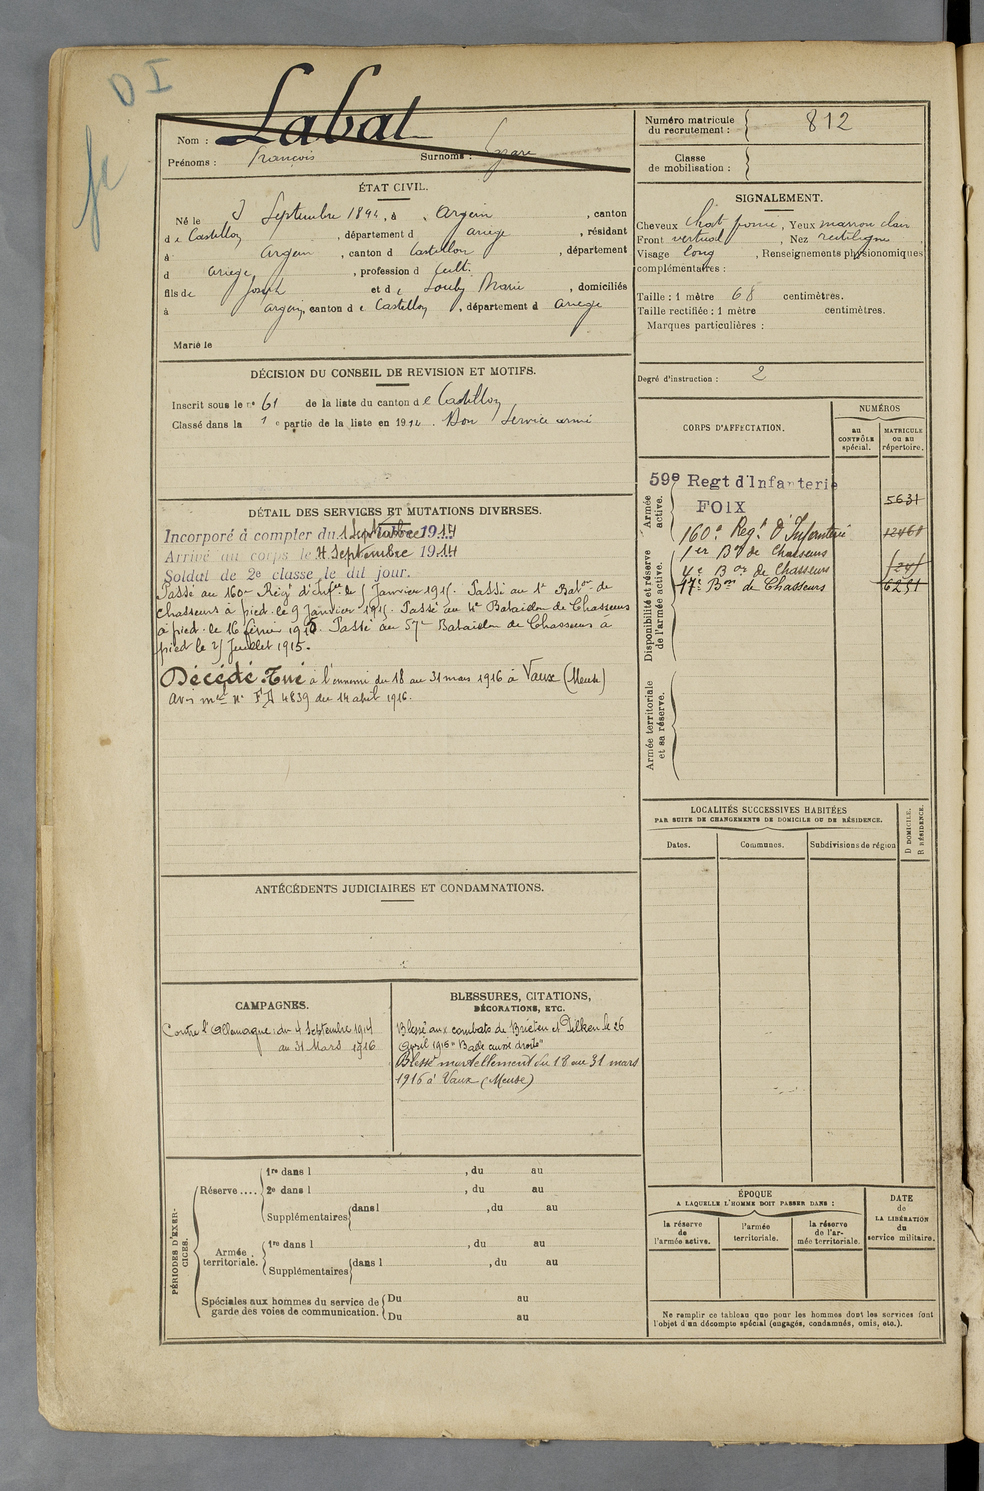 D I
Nom : Labat
Prénoms : François Surnoms :
Numéro matricule du recrutement : 812
Classe de mobilisation :
ÉTAT CIVIL.
Né le 3 Septembre 1894, à Argein, canton
de Castillon, département d ariege, résidant
à Argein, canton d Castillon, département
d ariege, profession d cult.
fils de Joseph et de Souby Marie, domiciliés
à argein, canton de Castillon, département d ariege
Marié le
SIGNALEMENT.
Cheveux chat foncé, Yeux marron clair
Front vertical, Nez rectiligne.
Visage long, Renseignements physionomiques
complémentaires :
Taille : 1 mètre 68 centimètres.
Taille rectifiée : 1 mètre centimètres.
Marques particulières :
Degré d'instruction : 2
DÉCISION DU CONSEIL DE REVISION ET MOTIFS.
Inscrit sous le n° 61 de la liste du canton de Castillon
Classé dans la 1e partie de la liste en 1914. Bon Service armé
CORPS D'AFFECTATION.
NUMÉROS
au CONTRÔLE spécial.
MATRICULE ou au répertoire.
Armée active.
59e Regt d'Infanterie 5631
FOIX
160e Regt d'Infanterie
1er Bon de Chasseurs
Disponibilité et réserve de l'armée active.
4e Bon de Chasseurs
17e Bon de Chasseurs 6251
Armée territoriale et sa réserve.
DÉTAIL DES SERVICES ET MUTATIONS DIVERSES.
Incorporé à compter du 1 Septembre 1914
Arrivé au corps le 4 Septembre 1914
Soldat de 2e classe le dit jour.
Passé au 160e Régt d'infrie le 5 Janvier 1915. Passé au 1er Baton de
Chasseurs à pied le 9 Janvier 1915. Passé au 4e Bataillon de Chasseurs
à pied le 16 février 1915. Passé au 57e Bataillon de Chasseurs à
pied le 25 Juillet 1915.
Décédé Tué à l'ennemi du 18 au 31 mars 1916 à Vaux (Meuse)
avis mel n° FD 4839 du 14 abril 1916.
LOCALITÉS SUCCESSIVES HABITÉES
PAR SUITE DE CHANGEMENTS DE DOMICILE OU DE RÉSIDENCE.
Dates. Communes. Subdivisions de région
D DOMICILE.
R RÉSIDENCE.
ANTÉCÉDENTS JUDICIAIRES ET CONDAMNATIONS.
CAMPAGNES.
Contre l'Allemagne : du 4 Septembre 1914
au 31 Mars 1916
BLESSURES, CITATIONS,
DÉCORATIONS, ETC.
Blessé aux combats de et Pilken le 26
Avril 1915 "Balle cuisse droite"
Blessé mortellement du 18 au 31 mars
1916 à Vaux (Meuse)
PÉRIODES D'EXERCICES.
Réserve ....
1re dans l , du au
2e dans l , du au
Supplémentaires dans l , du au
Armée territoriale.
1re dans l , du au
Supplémentaires dans l , du au
Spéciales aux hommes du service de garde des voies de communication.
Du au
Du au
ÉPOQUE
A LAQUELLE L'HOMME DOIT PASSER DANS :
la réserve de l'armée active.
l'armée territoriale.
la réserve de l'armée territoriale.
DATE de LA LIBÉRATION du service militaire.
Ne remplir ce tableau que pour les hommes dont les services font
l'objet d'un décompte spécial (engagés, condamnés, omis, etc.).